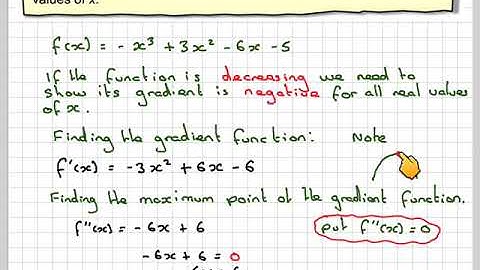 values of x.
f(x) = - x³ + 3x² - 6x - 5
If the function is decreasing we need to
show its gradient is negative for all real values
of x.
Finding the gradient function: Note
f'(x) = -3x² + 6x - 6
Finding the maximum point of the gradient function.
f"(x) = - 6x + 6 put f"(x) = 0
-6x + 6 = 0